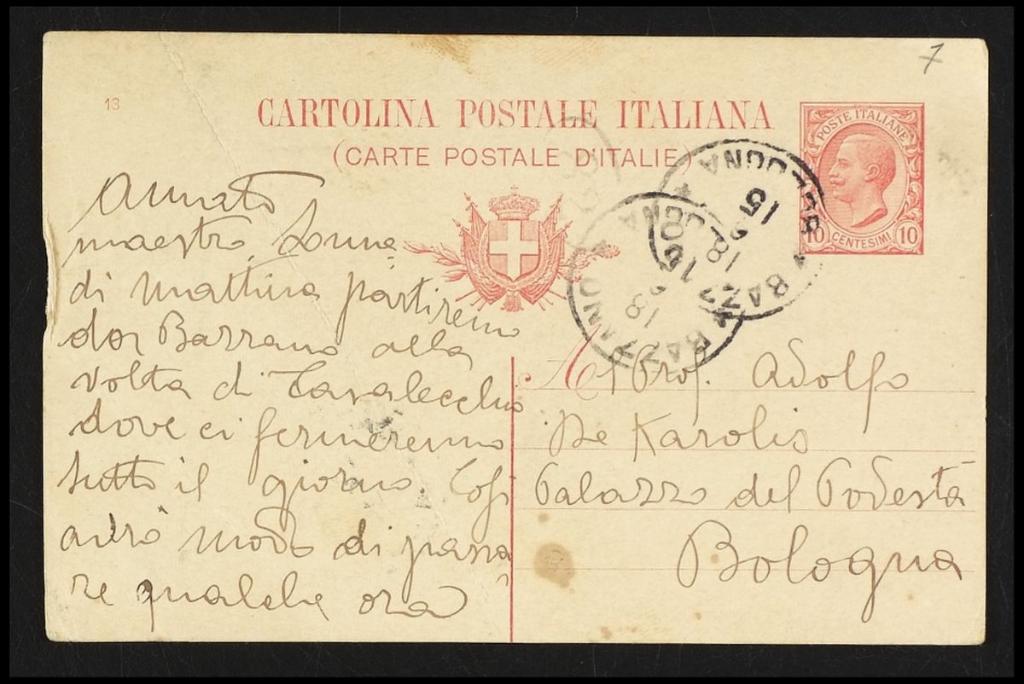 7
13
CARTOLINA POSTALE ITALIANA
(CARTE POSTALE D'ITALIE)
POSTE ITALIANE
10 CENTESIMI 10
BAZZANO BOLOGNA
15 2 18
BAZZANO BOLOGNA
16 18
Amato
maestro,
di mattina partiremo
da Bazzano alla
volta di Casalecchio
dove ci fermeremo
tutto il giorno. Così
avrò modo di passa
re qualche ora
Al Prof. Adolfo
De Karolis
Palazzo del Podestà
Bologna